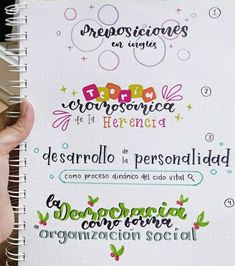 Preposiciones
en inglés
1
Teoría
cromosómica
de la Herencia
2
desarrollo de la personalidad
como proceso dinámico del ciclo vital
3
la Democracia
como forma
organización social
4